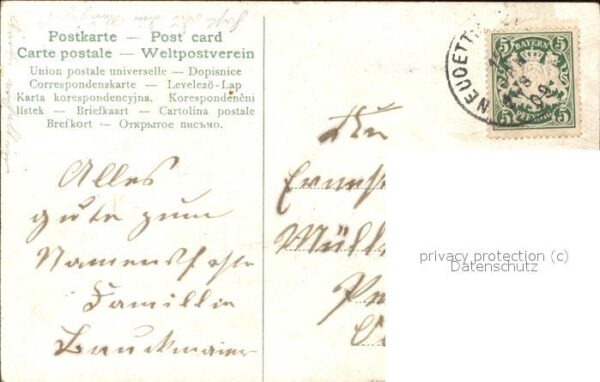 Postkarte — Post card
Carte postale — Weltpostverein
Union postale universelle — Dopisnice
Correspondenzkarte — Levelező-Lap
Karta korespondencyjna. Korespondenční
lístek — Briefkaart — Cartolina postale
Brefkort — Открытое письмо.
Alles
gute zum
Namensfeste
Familie
Bruckmaier
An
Ernest
Müll
BAYERN
5 5
5 5
PFENNIG
NEUOETT
09
privacy protection (c)
Datenschutz